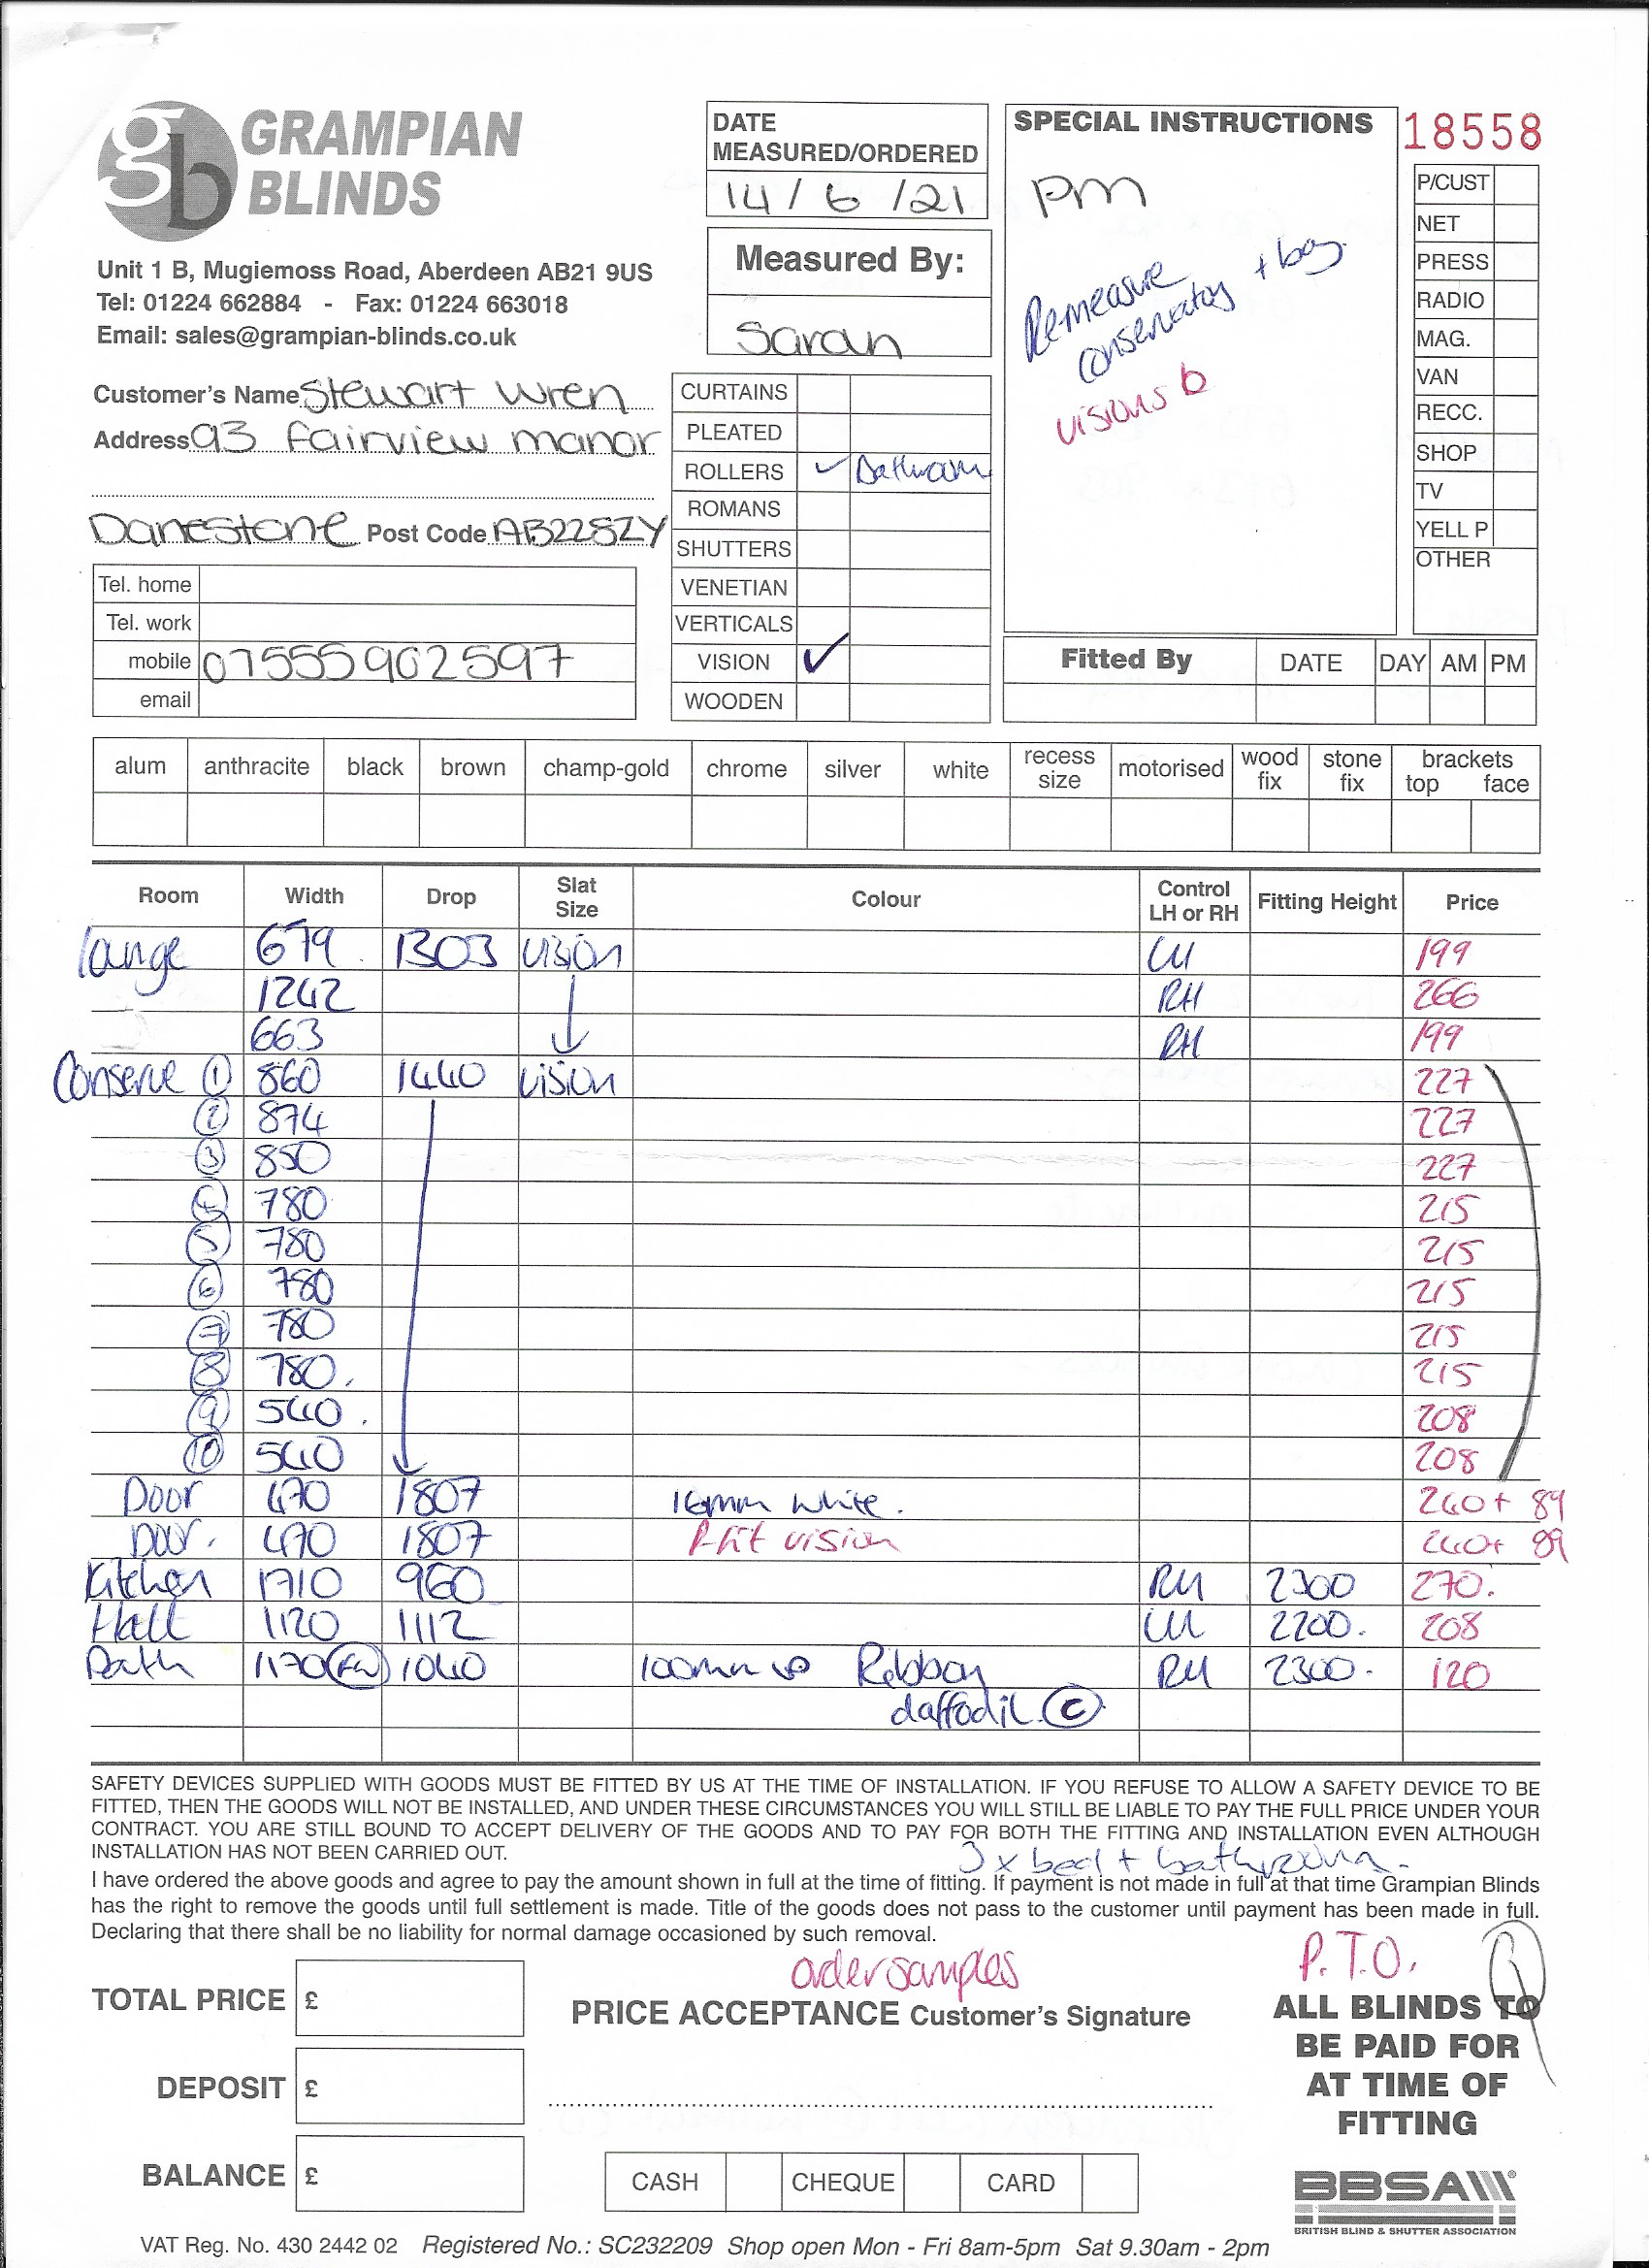 GRAMPIAN
BLINDS
Unit 1 B, Mugiemoss Road, Aberdeen AB21 9US
Tel: 01224 662884 - Fax: 01224 663018
Email: sales@grampian-blinds.co.uk
DATE
MEASURED/ORDERED
14/6/21
Measured By:
Sarah
SPECIAL INSTRUCTIONS
pm
Remeasure
conservatory + bay
visions b
18558
P/CUST
NET
PRESS
RADIO
MAG.
VAN
RECC.
SHOP
TV
YELL P
OTHER
Customer's Name Stewart Wren
Address 93 Fairview Manor
Danestone Post Code AB22 8ZY
Tel. home
Tel. work
mobile 07555902597
email
CURTAINS
PLEATED
ROLLERS ✓ Bathroom
ROMANS
SHUTTERS
VENETIAN
VERTICALS
VISION ✓
WOODEN
Fitted By DATE DAY AM PM
alum anthracite black brown champ-gold chrome silver white recess size motorised wood fix stone fix brackets top face
Room Width Drop Slat Size Colour Control LH or RH Fitting Height Price
lounge 679 1303 vision LH 199
1242 RH 266
663 RH 199
Conserve ① 860 1440 vision 227
② 874 227
③ 850 227
④ 780 215
⑤ 780 215
⑥ 780 215
⑦ 780 215
⑧ 780 215
⑨ 540 208
⑩ 540 208
Door 470 1807 16mm white. 240 + 89
Door. 470 1807 P-fit vision 240+ 89
Kitchen 1710 960 RH 2300 270.
Hall 1120 1112 LH 2200. 208
Bath 1170 (FW) 1040 100mm Ribbon RH 2300. 120
daffodil ©
SAFETY DEVICES SUPPLIED WITH GOODS MUST BE FITTED BY US AT THE TIME OF INSTALLATION. IF YOU REFUSE TO ALLOW A SAFETY DEVICE TO BE
FITTED, THEN THE GOODS WILL NOT BE INSTALLED, AND UNDER THESE CIRCUMSTANCES YOU WILL STILL BE LIABLE TO PAY THE FULL PRICE UNDER YOUR
CONTRACT. YOU ARE STILL BOUND TO ACCEPT DELIVERY OF THE GOODS AND TO PAY FOR BOTH THE FITTING AND INSTALLATION EVEN ALTHOUGH
INSTALLATION HAS NOT BEEN CARRIED OUT.
3 x bed + bathroom.
I have ordered the above goods and agree to pay the amount shown in full at the time of fitting. If payment is not made in full at that time Grampian Blinds
has the right to remove the goods until full settlement is made. Title of the goods does not pass to the customer until payment has been made in full.
Declaring that there shall be no liability for normal damage occasioned by such removal.
order samples
P.T.O.
TOTAL PRICE £
PRICE ACCEPTANCE Customer's Signature
ALL BLINDS TO
BE PAID FOR
AT TIME OF
FITTING
DEPOSIT £
BALANCE £
CASH CHEQUE CARD
BBSA
BRITISH BLIND & SHUTTER ASSOCIATION
VAT Reg. No. 430 2442 02 Registered No.: SC232209 Shop open Mon - Fri 8am-5pm Sat 9.30am - 2pm